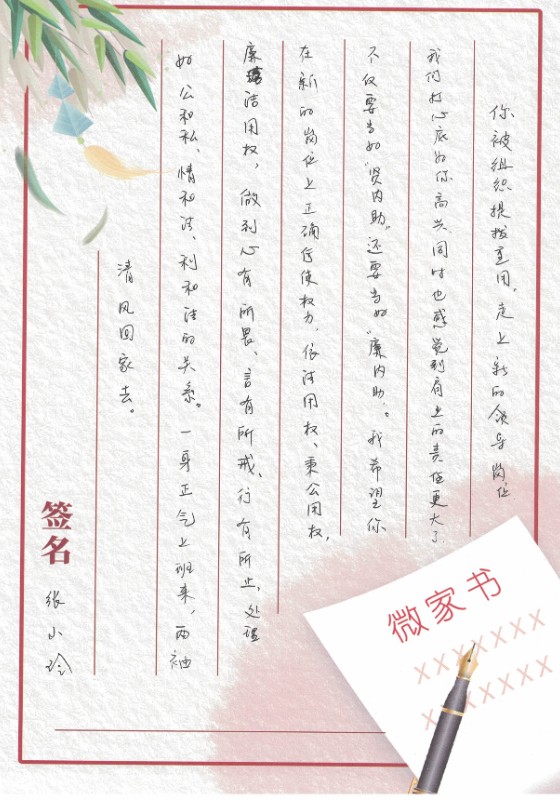 你被组织提拨重用，走上新的领导岗位
我们打心底为你高兴同时也感觉到肩上的责任更大了
不仅要当好“贤内助”还要当好“廉内助”。我希望你
在新的岗位上正确行使权力，依法用权、秉公用权，
廉洁用权，做到心有所畏、言有所戒、行有所止，处理
好公和私、情和法、利和法的关系。一身正气上班来，两袖
清风回家去。
签名 张小玲
微家书
XXXXXXX
XXXXXXX